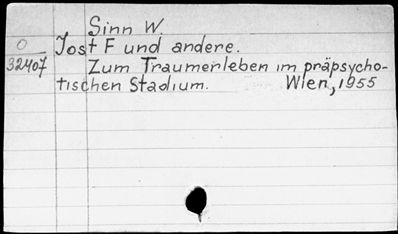 Sinn W.
O Jost F und andere.
32407 Zum Traumerleben im präpsycho-
tischen Stadium. Wien, 1955